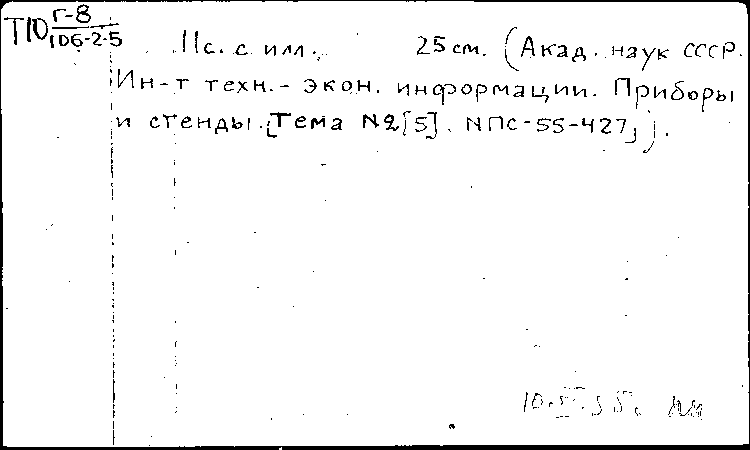 Т10 Г-8
106-2-5
11 с. с илл. 25 см. (Акад. наук СССР.
Ин-т техн.-экон. информации. Приборы
и стенды. [Тема №2[5]. №ПС-55-427]).